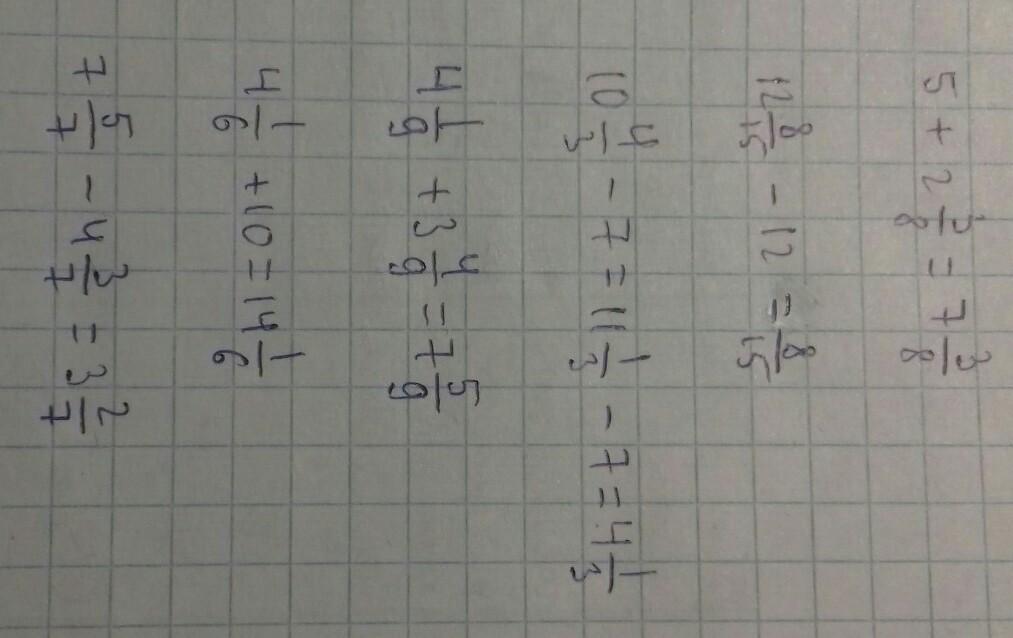 5 + 2 3/8 = 7 3/8
12 8/15 - 12 = 8/15
10 4/3 - 7 = 11 1/3 - 7 = 4 1/3
4 1/9 + 3 4/9 = 7 5/9
4 1/6 + 10 = 14 1/6
7 5/7 - 4 3/7 = 3 2/7